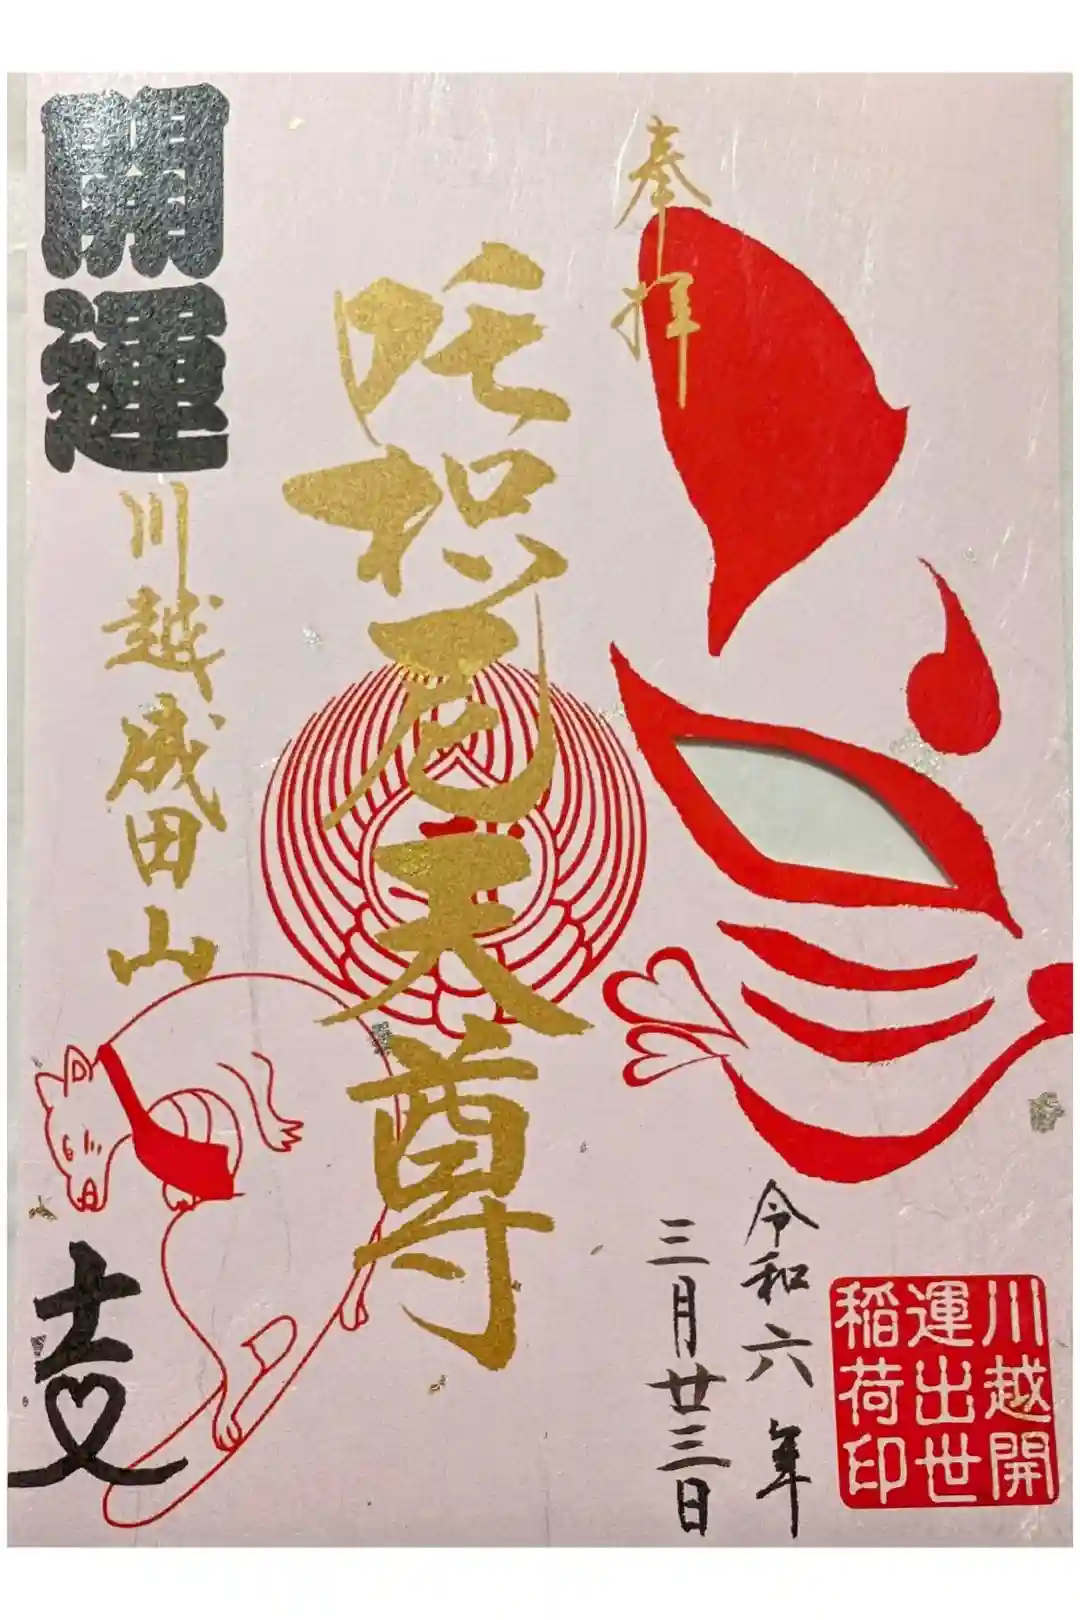 奉拝
吒枳尼天尊
開運
川越成田山
支
令和六年
三月廿三日
川越開
運出世
稲荷印